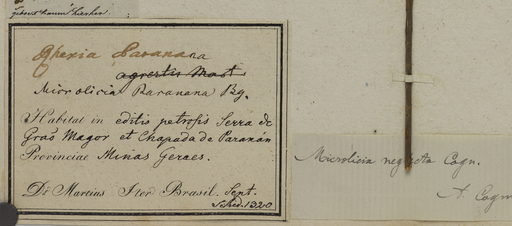 gehört kaum hierher.
Rhexia Paranana
agrestis Mart
Microlicia Paranana Bg.
Habitat in editis petrosis Serra de
Graõ Magor et Chapada de Paranán
Provinciae Minas Geraes.
Dr Martius Iter Brasil. Sept.
1820
Microlicia neglecta Cogn.
A. Cogn